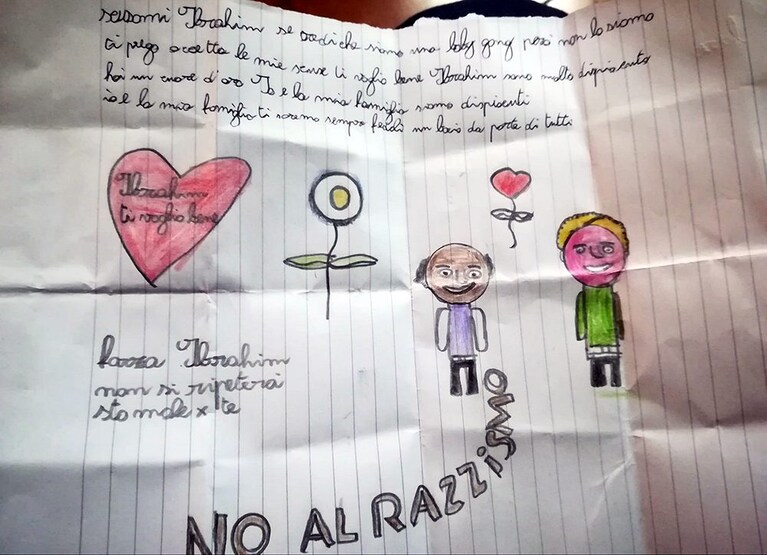 scusami Ibrahim se credi che siamo una baby gang però non lo siamo
ti prego accetta le mie scuse ti voglio bene Ibrahim sono molto dispiaciuto
hai un cuore d'oro Io e la mia famiglia siamo dispiaciuti
io e la mia famiglia ti saremo sempre fedeli un bacio da parte di tutti
Ibrahim
ti voglio bene
forza Ibrahim
non si ripeterà
sto male x te
NO AL RAZZiSMO